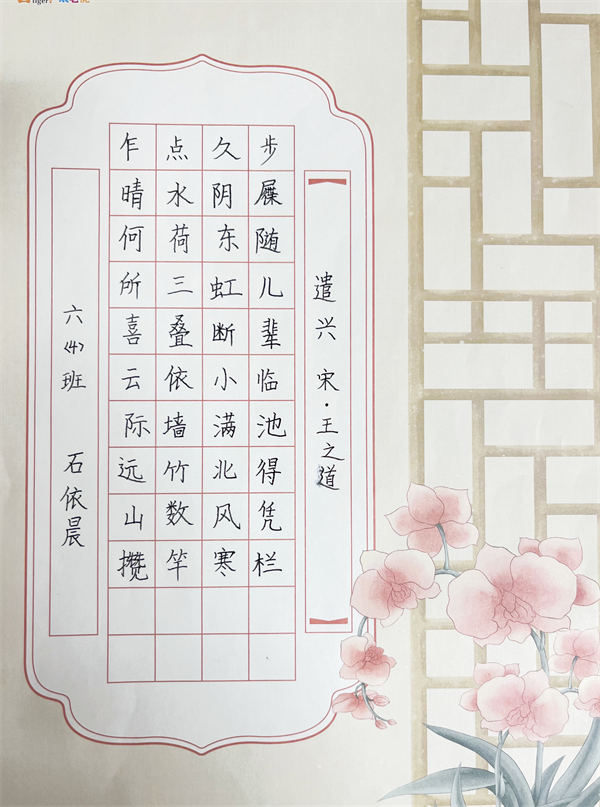 遣兴 宋·王之道
步屧随儿辈临池得凭栏
久阴东虹断小满北风寒
点水荷三叠依墙竹数竿
乍晴何所喜云际远山攒
六〈4〉班 石依晨